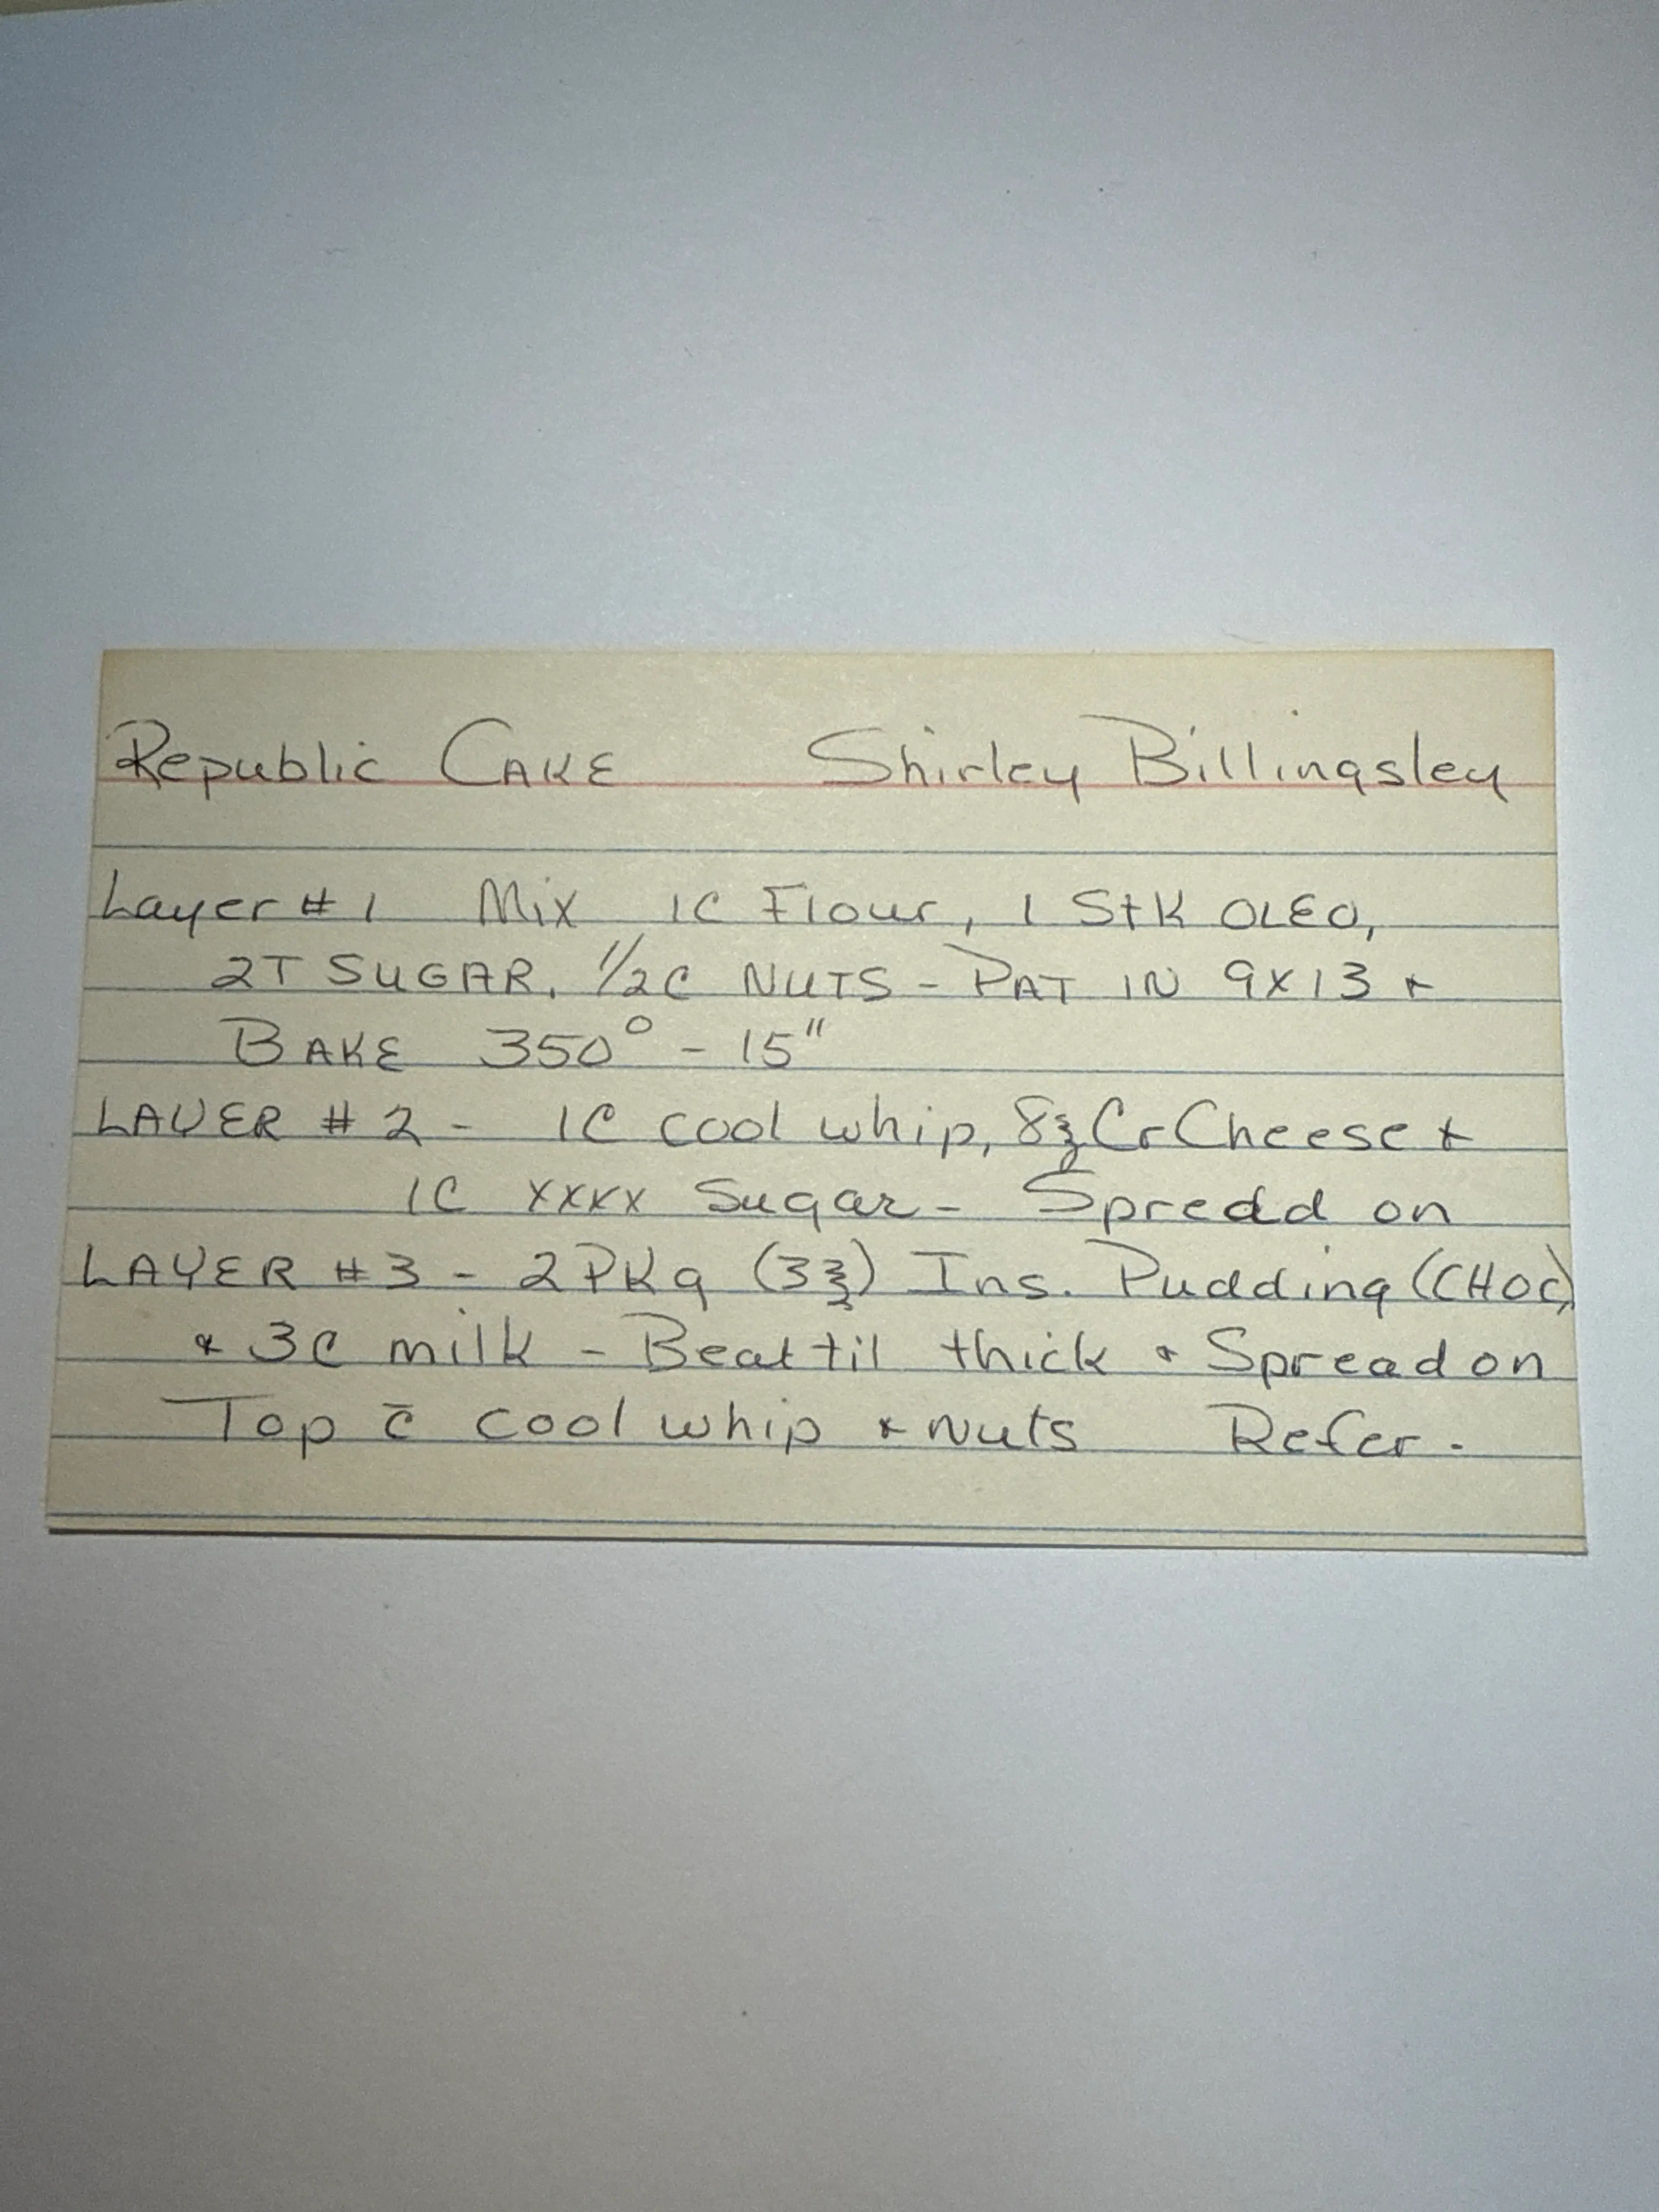 Republic CAKE Shirley Billingsley
Layer # 1 Mix 1C Flour, 1 StK OLEO,
2T SUGAR, 1/2C NUTS - PAT IN 9X13 &
BAKE 350° - 15"
LAYER # 2 - 1C cool whip, 8℥ Cr Cheese &
1C xxxx Sugar - Spread on
LAYER # 3 - 2 PKg (3℥) Ins. Pudding (CHOC)
& 3C milk - Beat til thick & Spread on
Top c̄ cool whip & Nuts Refer.